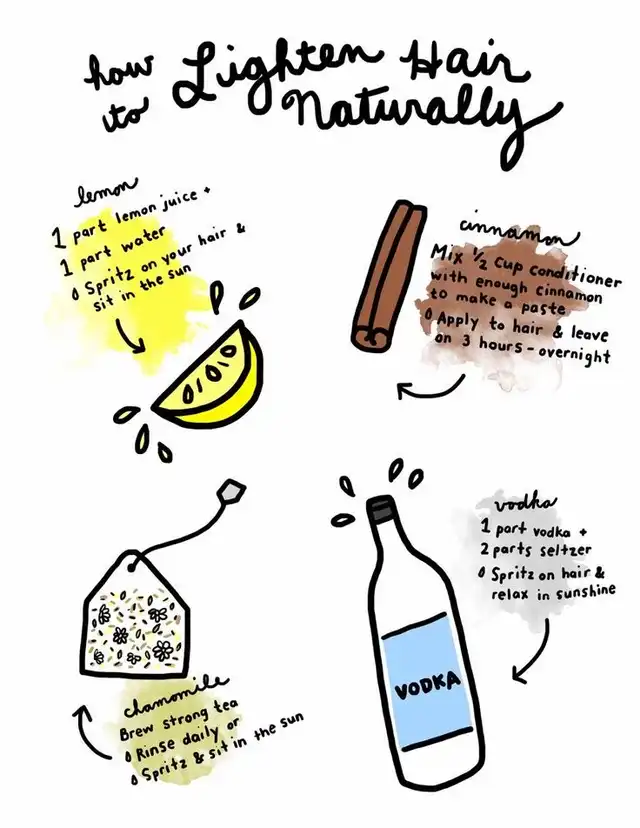 how to Lighten Hair
Naturally
lemon
1 part lemon juice +
1 part water
◊ Spritz on your hair &
sit in the sun
cinnamon
Mix ½ cup conditioner
with enough cinnamon
to make a paste
◊ Apply to hair & leave
on 3 hours - overnight
chamomile
Brew strong tea
◊ Rinse daily or
◊ Spritz & sit in the sun
vodka
1 part vodka +
2 parts seltzer
◊ Spritz on hair &
relax in sunshine
VODKA